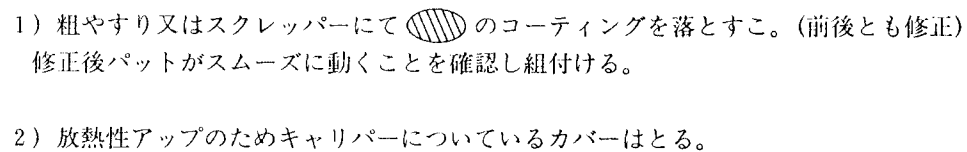 1) 粗やすり又はスクレッパーにて のコーティングを落とすこ。(前後とも修正)
修正後パットがスムーズに動くことを確認し組付ける。
2) 放熱性アップのためキャリパーについているカバーはとる。